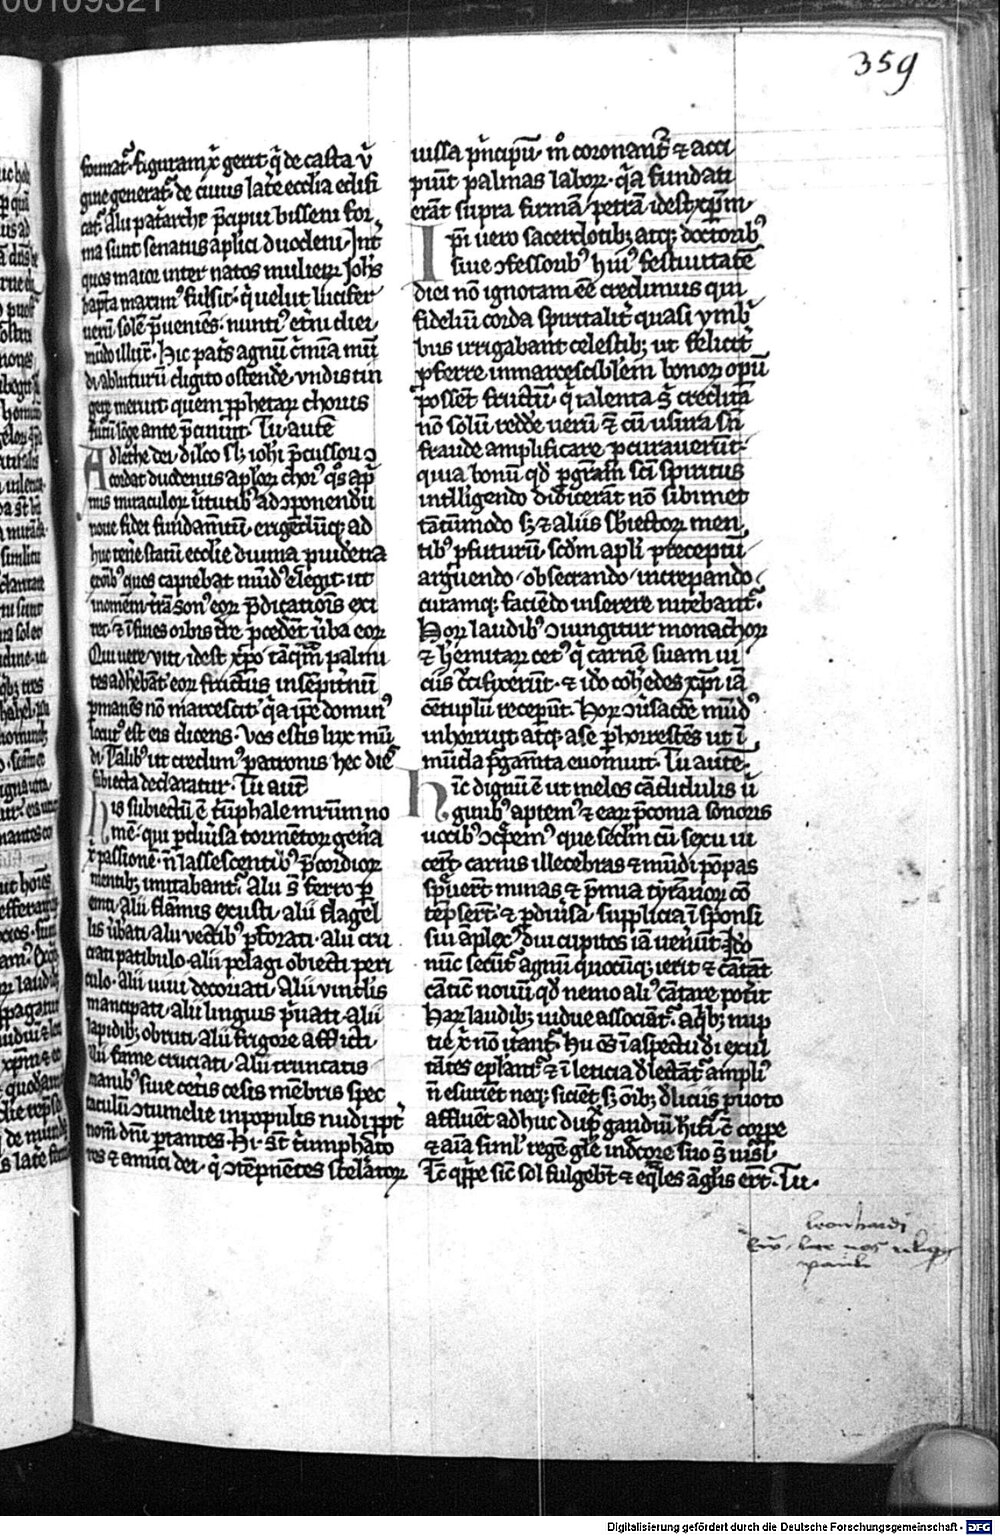 359
format᷑. figuram χ̄ gerit q̄ de casta v̄
gine generat᷑. de cuius lat̄e eccl̄ia edifi
cat᷑. Alii pat̄arche p̄cipui bisseni for
ma sunt senatus apl̄ici duodeni. Int̄
quos maior inter natos mulieꝝ Joh̄s
bapt̄a maxim⁹ fulsit. q̄ uelut lucifer
uerū solē p̄ueniēs. nunti⁹ et̄ni diei.
mūdo illuxit. Hic pat̄s agnū c̄mīa mū
di abluturū digito ostende. vndis tin
gere meruit quem ꝓphetaꝝ chorus
futū lōge ante p̄cinunt. Tu autē
Ad lethe dei
cordat duodenus apl̄oꝝ chor⁹ q̊s ap̄
mis miraculoꝝ ūtutib⁹ ad ꝯponendū
noue fidei fundam̄tū. ad
huc ten̄e statū eccl̄ie diuina ꝓuidētia
quos capiebat mūd⁹ elegit. ut
son⁹ eoꝝ p̄dicatiōis exi
ret. ⁊ ī fines orbis t̄re ꝓcedēt ūba eoꝝ
Qui uere viti. id est xp̄o tāq̄m palmi
tes adh̄ebāt. eoꝝ fructus in sēpit̄nū
ꝑmanēs nō marcescit. q̄a ip̄e domin⁹
locut⁹ est eis dicens. Vos estis lux mū
di. Talib⁹ ut credim⁹ patronis hec die
subiecta declaratur. Tu aut̄
his subiectū ē t̄ūphale no
mē. qui ꝑ diūsa tormētoꝝ gen̄a
χ̄ passionē. n̄ lassescentib⁹ p̄cordioꝝ
mentib; imitabant᷑. Alii s̄ ferro ꝑ
empti. alii flāmis exusti. alii flagel
lis ūbati. alii vectib⁹ ꝑforati. alii cru
ciati patibulo. alii pelagi obiecti peri
culo. alii uiui decoriati. Alii vinclis
mancipati. alii linguis p̄uati. alii
lapidib; obruti. alii frigore afflicti
alii fame cruciati. Alii truncatis
manib⁹ siue cet̄is cesis mēbris spec
taculū ꝯtumelie in populis nudi ꝓpt̄
nom̄ dn̄i portantes. Hi. s̄t t̄umphato
res ⁊ amici dei. q̄ ꝯtēpnētes scel̄atoꝝ
iussa p̄ncipū. m̊ coronant᷑ ⁊ acci
piūt palmas laboꝝ. q̄a fundati
erāt supra firmā petrā id est xp̄m.
Ipi uero sacerdotib; atq; doctorib⁹
siue ꝯfessorib⁹ hui⁹ festiuitatē
diei nō ignotam eē credimus qui
fidelium corda spiritalit̄ quasi ymb̄
bus irrigabant celestib; ut felicit̄
ꝓferre inmarcescibilem bonoꝝ opū
possēt fructū. q̄ talenta s̄ credita
nō solū redde ueru ⁊ cū usura sn̄
fraude amplificare ꝓcurauerūt.
quia bonū qd̄ ꝑ grām sci spiritus
intelligendo didicerāt nō sibimet
tātūmodo s; ⁊ aliis sb̄iectoꝝ men
tib⁹ ꝓfuturū. scd̄m apl̄i p̄receptū
arguendo. obsecrando. increpando
curamq; faciēdo inserere nitebant᷑.
Hoꝝ laudib⁹ ꝯiungitur monachoꝝ
⁊ h̄emitaꝝ cet⁹ q̄ carnē suam ui
ciis c̄cifixerūt. ⁊ ido coh̄edes xp̄m iā
cētuplū receper̄t. Hoꝝ ꝯūsac̄oē mūd⁹
inhorruit atq; a se ꝑhorrescēs ut ī
mūda Tu autē.
hīc dignū ē ut melos cādidulis ū
ginib⁹ aptem⁹ ⁊ eaꝝ p̄conia sonoris
uocib⁹ que scd̄m cū sexu ui
cerūt carnis illecebras ⁊ mūdi pōpas
sp̄uerūt minas ⁊ p̄mia tyrānoꝝ cō
tēpserūt. ⁊ ꝑ diūsa supplicia ī sponsi
sui āplex⁹ diu cupitos iā uenūt. Ido
nūc secūt᷑ agnū quocūq; ierit ⁊ cātāt
cātic̄ nouū qd̄ nemo ali⁹ cātare potit̄
Haꝝ laudib; uidue associāt᷑. a qb; nup
tie χ̄ nō it̄ant᷑. Hii ō̄s ī aspectu di exul
tātes eplant᷑ ⁊ ī leticia dlectāt᷑ ampli⁹
n̄ esuriēt neq; sicient s; ōib; dliciis ꝓuoto
affluēt adhuc dup̄x gaudiū hiti. ē corꝑe
⁊ aīa siml̄ regē gle in dcore suo s̄ uisl̄.
Tc̄ qp̄pe sic̄ sol fulgeb̄t ⁊ eq̄les āglis erūt. Tu.
leonhardi
pauli
Digitalisierung gefördert durch die Deutsche Forschungsgemeinschaft - DFG